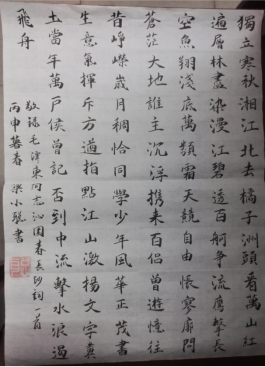 獨立寒秋湘江北去橘子洲頭看萬山紅
遍層林盡染漫江碧透百舸爭流鷹擊長
空魚翔淺底萬類霜天競自由悵寥廓問
蒼茫大地誰主沉浮携来百侶曾遊憶往
昔崢嶸歲月稠恰同學少年風華正茂書
生意氣揮斥方遒指點江山激揚文字糞
土當年萬戶侯曾記否到中流擊水浪遏
飛舟
敬録毛澤東同志沁園春長沙詞一首
丙申暮春 梁小書